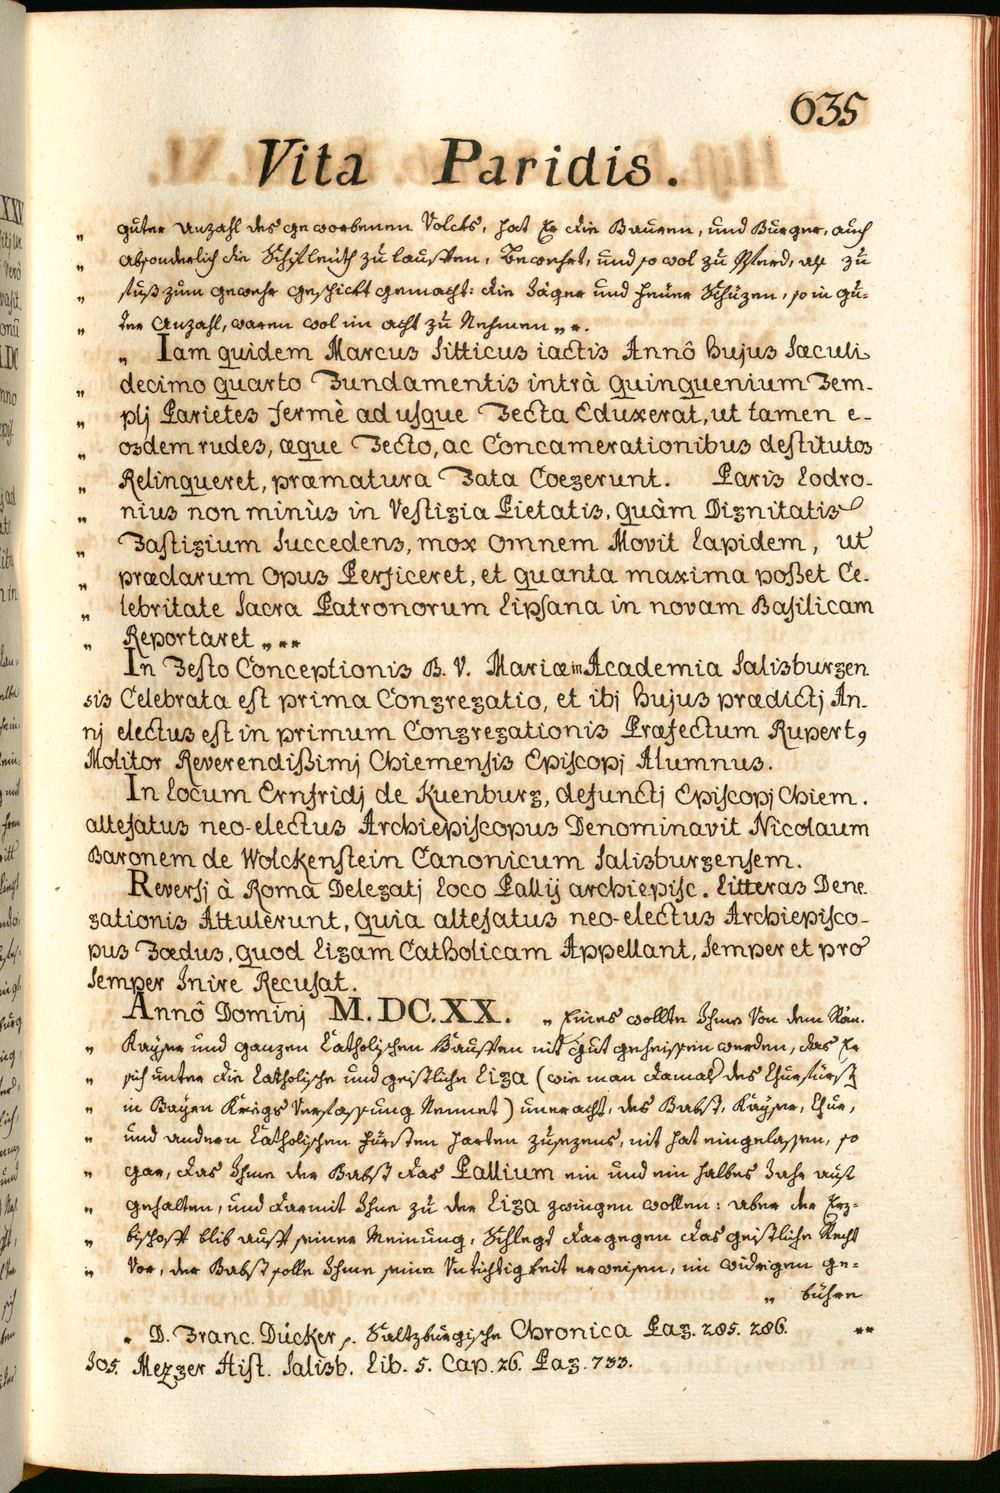 635
Vita Paridis.
„ guter Anzahl des geworbenen Volcks, hat Er die Bauren, und Burger, auch
„ absonderlich die Schifleüth zu Lauffen, Bewehrt, und so wol zu Pferd, als zu
„ fuß zum gewehr geschickt gemacht: die Jäger und Schüzen, so in gu-
„ ter Anzahl, waren wol in acht zu Nehmen „ *.
„ „ Iam quidem Marcus Sitticus iactis Annô hujus Sæculi
„ decimo quarto Fundamentis intrà quinquenium Tem-
„ plj Parietes fermè ad usque Tecta Eduxerat, ut tamen e-
„ osdem rudes, æque Tecto, ac Concamerationibus destitutos
„ Relinqueret, præmatura Fata Coegerunt. Paris Lodro-
„ nius non minùs in Vestigia Pietatis, quàm Dignitatis
„ Fastigium Succedens, mox omnem Movit Lapidem, ut
„ præclarum Opus Perficeret, et quanta maxima poßet Ce-
„ lebritate Sacra Patronorum Lipsana in novam Basilicam
„ Reportaret „ **
In Festo Conceptionis B. V. Mariæ in Academia Salisburgen
sis Celebrata est prima Congregatio, et ibj hujus prædictj An-
nj electus est in primum Congregationis Præfectum Rupertꝰ
Molitor Reverendißimj Chiemensis Episcopj Alumnus.
In Locum Ernfridj de Kuenburg, defunctj Episcopj Chiem.
altefatus neo-electus Archiepiscopus Denominavit Nicolaum
Baronem de Wolckenstein Canonicum Salisburgensem.
Reversj à Româ Delegatj loco Pallij archiepisc. Litteras Dene
gationis Attulèrunt, quia altefatus neo-electus Archiepisco-
pus Fœdus, quod Ligam Catholicam Appellant, semper et pro
semper Inire Recusat.
Annô Dominj M.DC.XX. „ Eines wollte Ihme Von dem Röm.
„ Kayser und ganzen Catholischen Hauffen nit gut geheissen werden, das Er
„ sich unter die Catholische und geistliche Liga (wie man damals des Churfürst
„ in Bayrn Kriegs Verfassung Nennet) uneracht, des Babst, Kayser, Chur,
„ und andern Catholischen Fürsten harten zusezens, nit hat eingelassen, so
„ gar, das Ihme der Babst das Pallium ein und ein halbes Jahr auf
„ gehalten, und darmit Ihne zu der Liga zwingen wollen: aber der Erz-
„ bischoff blib auff seiner Meinung, Schlegt dargegen das geistliche Recht
„ Vor, der Babst solle Ihme seine Untichtigkeit erweisen, im widrigen ge-
„ bühre
* D. Franc. Dücker, s. Saltzburgische Chronica Pag. 285. 286. **
Jos. Mezger Hist. Salisb. Lib. 5. Cap. 26. Pag. 733.